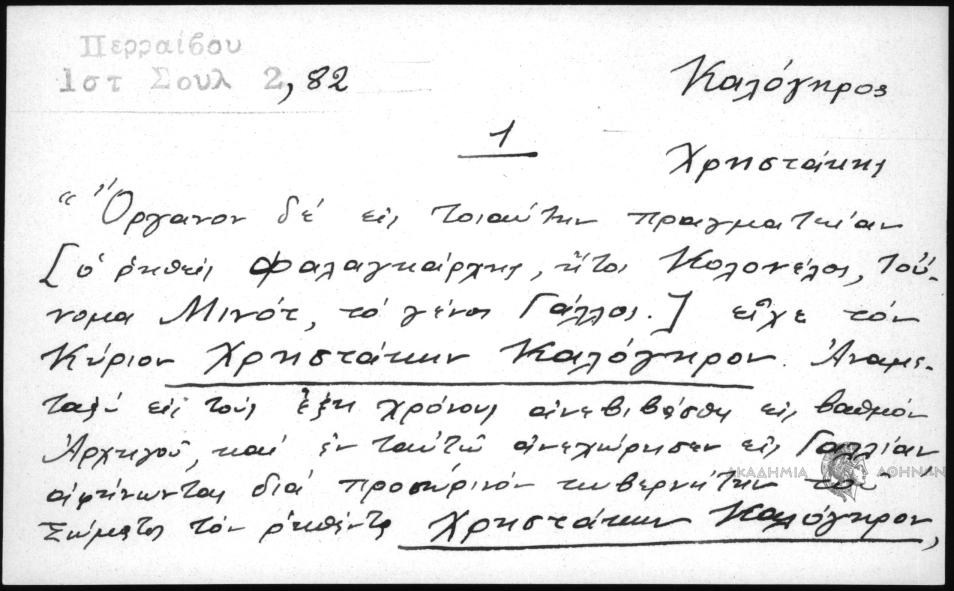 Περραίβου
1στ Σουλ 2,82
Καλόγηρος
1
Χρηστάκης
"Ὄργανον δέ εἰς τοιαύτην πραγματείαν
[ὁ ῥηθείς φαλαγκάρχης, ἤτοι Κολονέλος, τοὔ-
νομα Μινότ, τό γένος Γάλλος.] εἶχε τόν
Κύριον Χρηστάκην Καλόγηρον. Ἀναμε-
ταξύ εἰς τούς ἑξῆ χρόνους ἀνεβιβάσθη εἰς βαθμόν
Ἀρχηγοῦ, καί ἐν ταὐτῷ ἀνεχώρησεν εἰς Γαλλίαν
ἀφήνωντας διά προσωρινόν κυβερνήτην τοῦ
Σώματος τόν ῥηθέντα Χρηστάκην Καλόγηρον,
ΑΚΑΔΗΜΙΑ ΑΘΗΝΩΝ